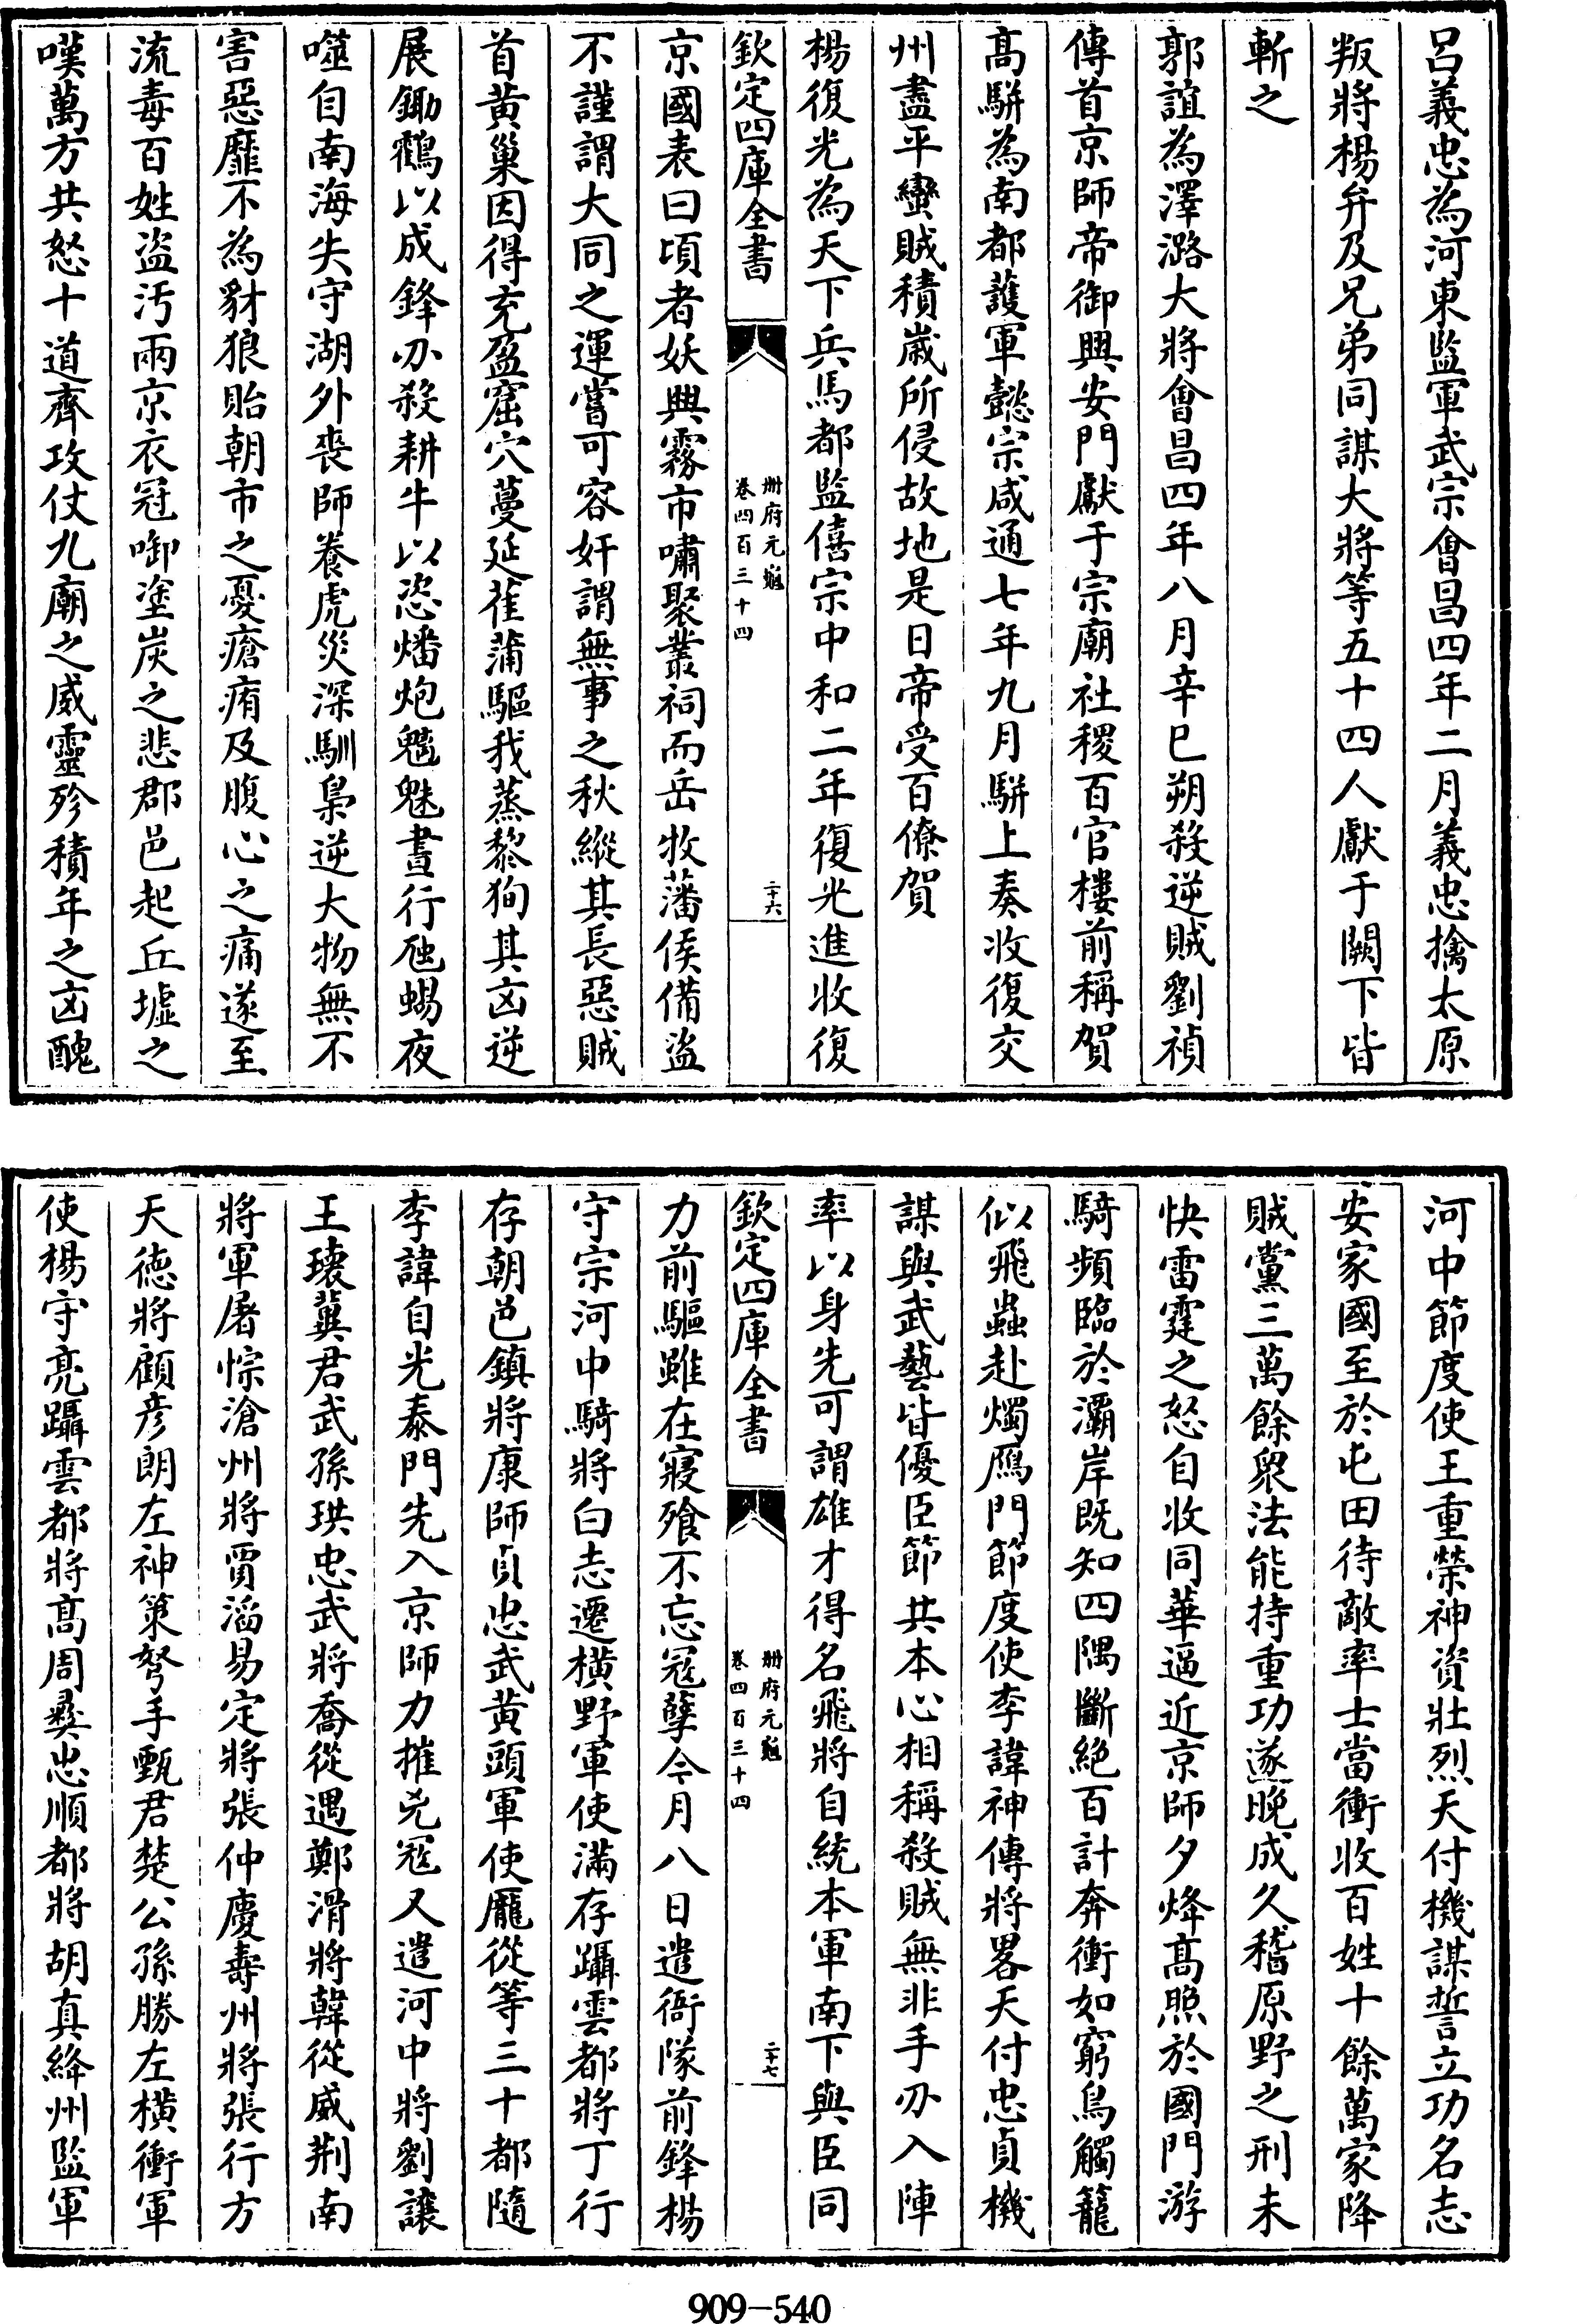 呂義忠為河東監軍武宗會昌四年二月義忠擒太原
叛將楊弁及兄弟同謀大將等五十四人獻于闕下皆
斬之
郭誼為澤潞大將會昌四年八月辛巳朔殺逆賊劉禎
傳首京師帝御興安門獻于宗廟社稷百官樓前稱賀
髙駢為南都護軍懿宗咸通七年九月駢上奏收復交
州盡平蠻賊積歲所侵故地是日帝受百僚賀
楊復光為天下兵馬都監僖宗中和二年復光進收復
欽定四庫全書
冊府元龜
卷四百三十四
二十六
京國表曰頃者妖興霧市嘯聚叢祠而岳牧藩侯備盜
不謹謂大同之運嘗可容奸謂無事之秋縱其長惡賊
首黄巢因得充盈窟穴蔓延萑蒲驅我蒸黎狥其凶逆
展鋤櫌以成鋒刃殺耕牛以恣燔炮魑魅晝行虺蜴夜
噬自南海失守湖外喪師養虎災深馴梟逆大物無不
害惡靡不為豺狼貽朝市之憂瘡痏及腹心之痛遂至
流毒百姓盜汚兩京衣冠啣塗炭之悲郡邑起丘墟之
嘆萬方共怒十道齊攻仗九廟之威靈殄積年之凶醜
河中節度使王重榮神資壯烈天付機謀誓立功名志
安家國至於屯田待敵率士當衝收百姓十餘萬家降
賊黨三萬餘衆法能持重功遂晚成久稽原野之刑未
快雷霆之怒自收同華逼近京師夕烽髙照於國門游
騎頻臨於灞岸既知四隅斷絶百計奔衝如窮鳥觸籠
似飛蟲赴燭鴈門節度使李諱神傳將畧天付忠貞機
謀與武藝皆優臣節共本心相稱殺賊無非手刃入陣
率以身先可謂雄才得名飛將自統本軍南下與臣同
欽定四庫全書
冊府元龜
卷四百三十四
二十七
力前驅雖在寢飱不忘冦孽今月八日遣衙隊前鋒楊
守宗河中騎將白志遷橫野軍使滿存躡雲都將丁行
存朝邑鎮將康師貞忠武黄頭軍使龐從等三十都隨
李諱自光泰門先入京師力摧兇冦又遣河中將劉讓
王瓌冀君武孫珙忠武將喬從遇鄭滑將韓從威荆南
將軍屠悰滄州將賈滔易定將張仲慶壽州將張行方
天徳將顧彦朗左神策弩手甄君楚公孫勝左橫衝軍
使楊守亮躡雲都將髙周彜忠順都將胡真絳州監軍
909-540